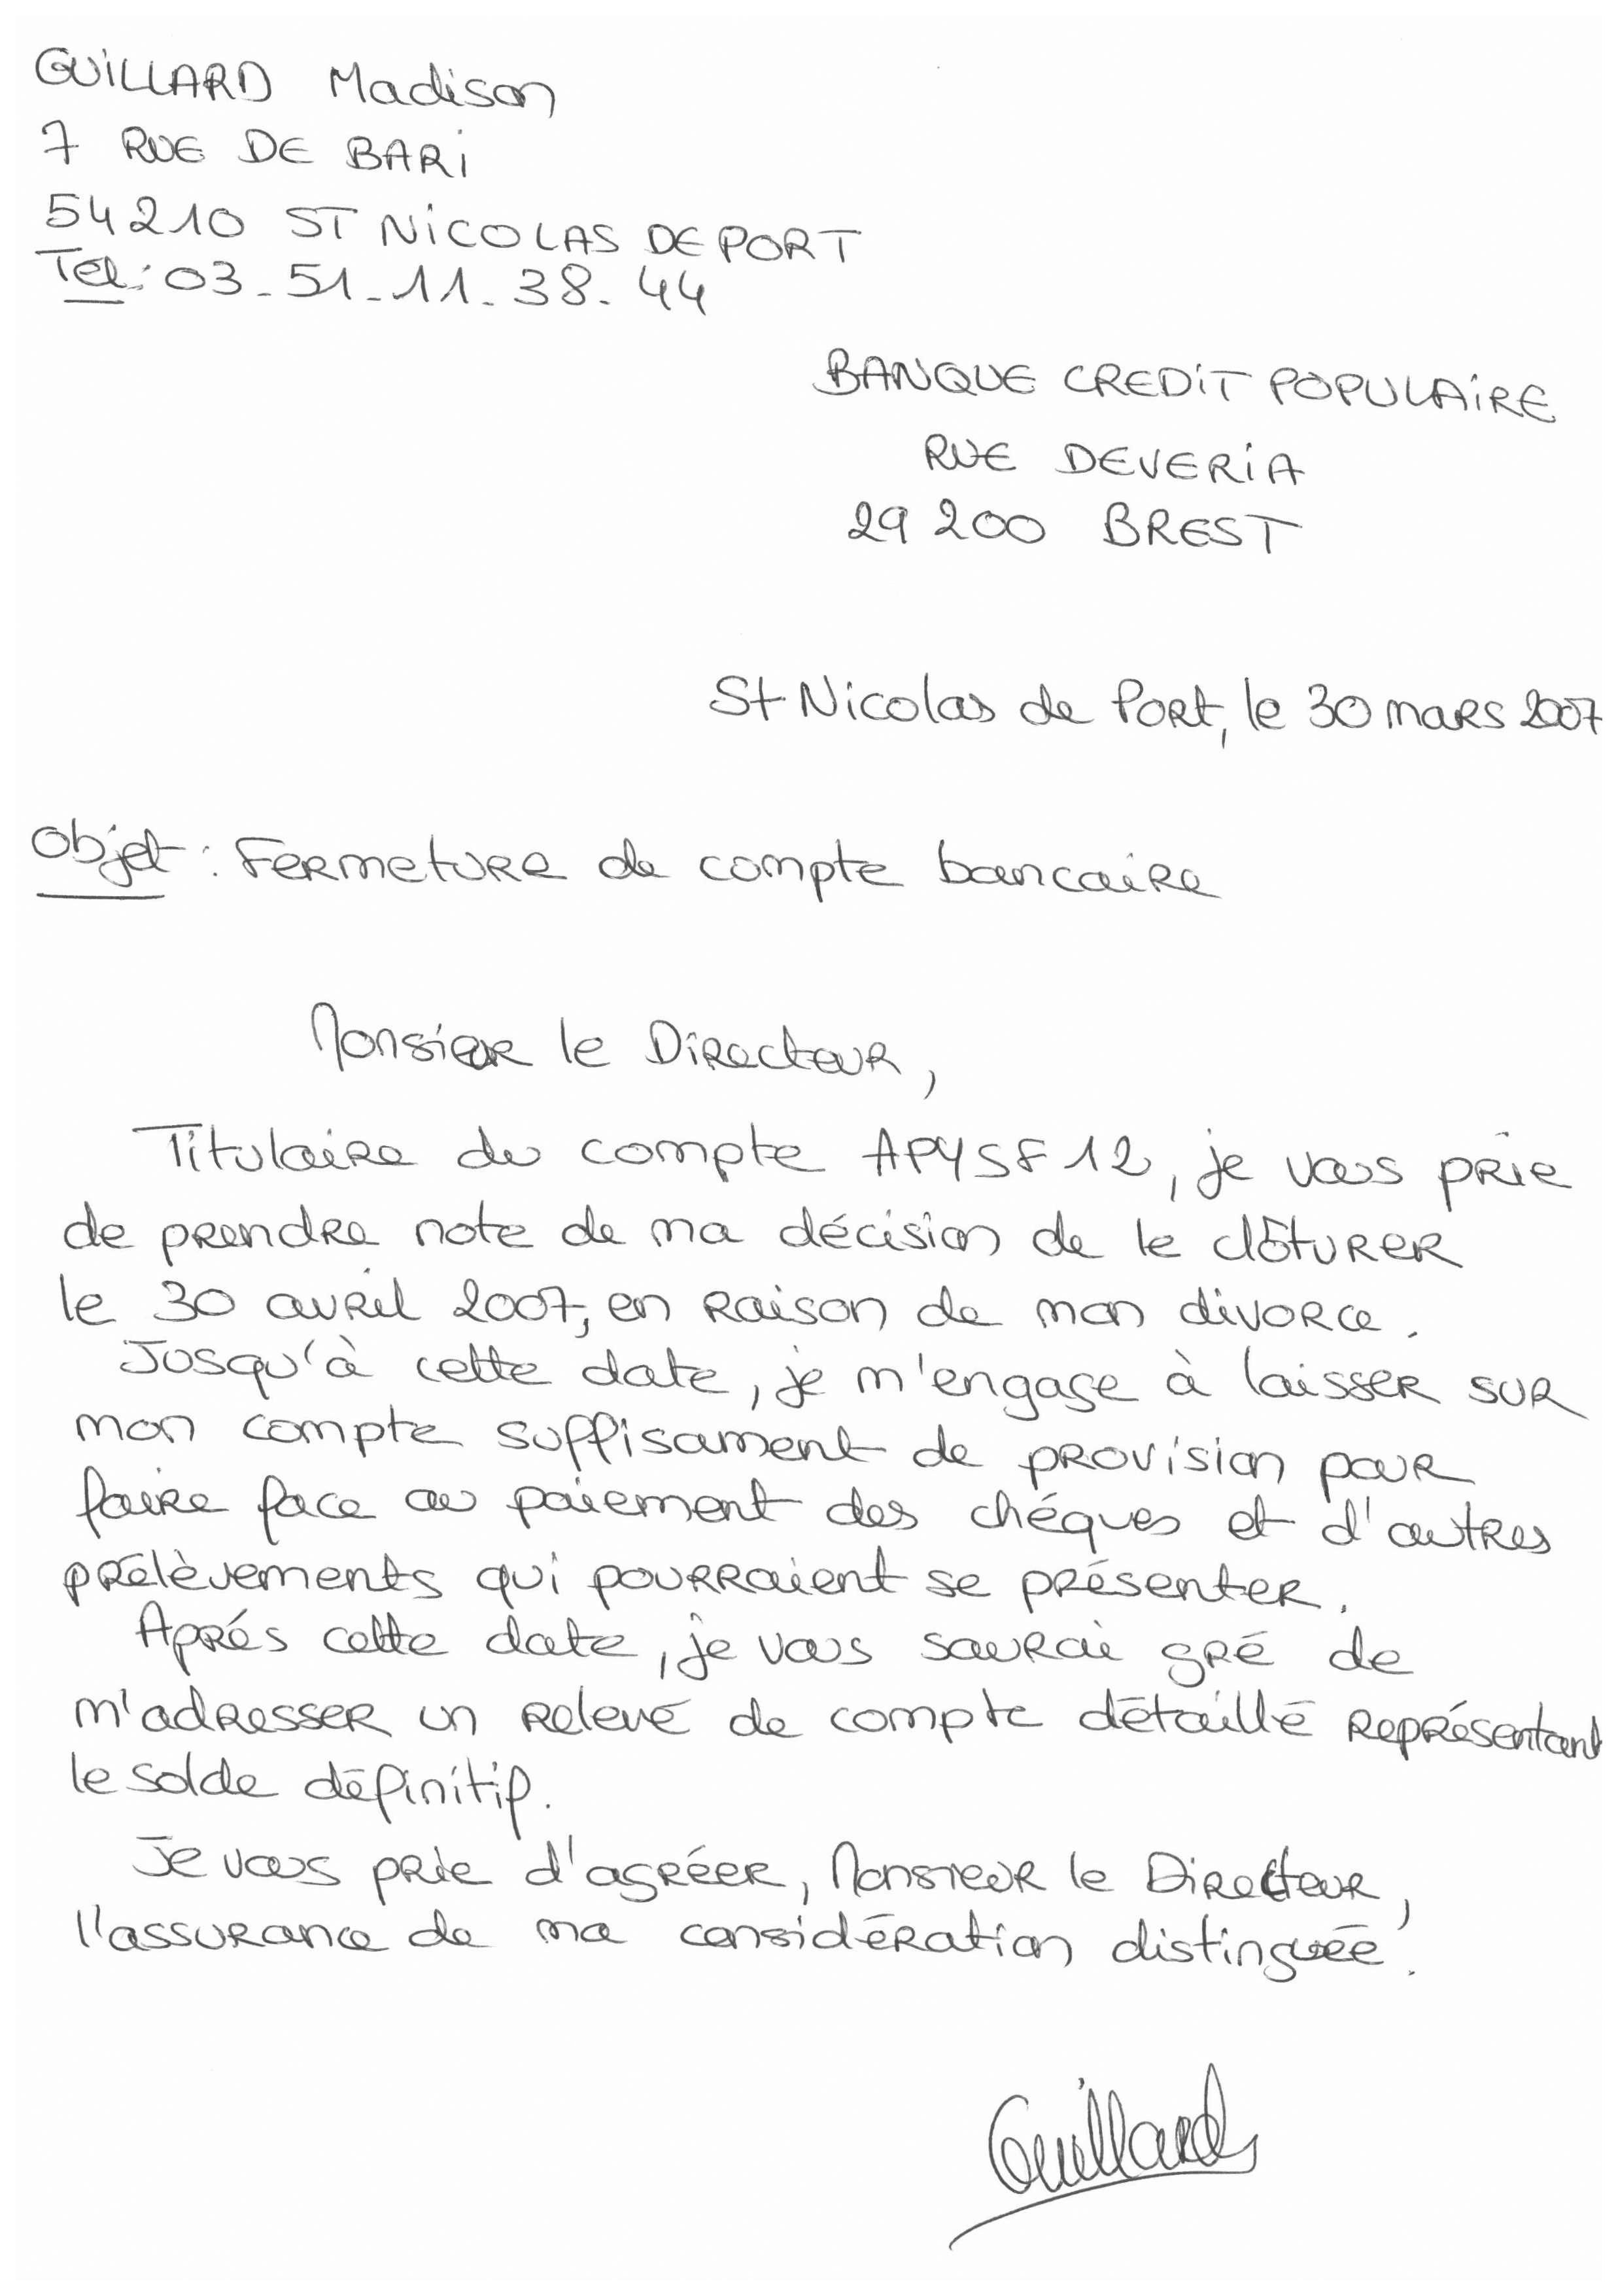 GUILLARD Madison
7 RUE DE BARI
54210 ST NICOLAS DE PORT
Tel: 03-51-11-38-44
BANQUE CREDIT POPULAIRE
RUE DEVERIA
29 200 BREST
St Nicolas de Port, le 30 mars 2007
Objet : Fermeture de compte bancaire
Monsieur le Directeur,
Titulaire du compte APYSF12, je vous prie
de prendre note de ma décision de le clôturer
le 30 avril 2007, en raison de mon divorce.
Jusqu'à cette date, je m'engage à laisser sur
mon compte suffisament de provision pour
faire face au paiement des chéques et d'autres
prélèvements qui pourraient se présenter.
Aprés cette date, je vous saurai gré de
m'adresser un relevé de compte détaillé représentant
le solde définitif.
Je vous prie d'agréer, Monsieur le Directeur,
l'assurance de ma considération distinguée.
Guillard